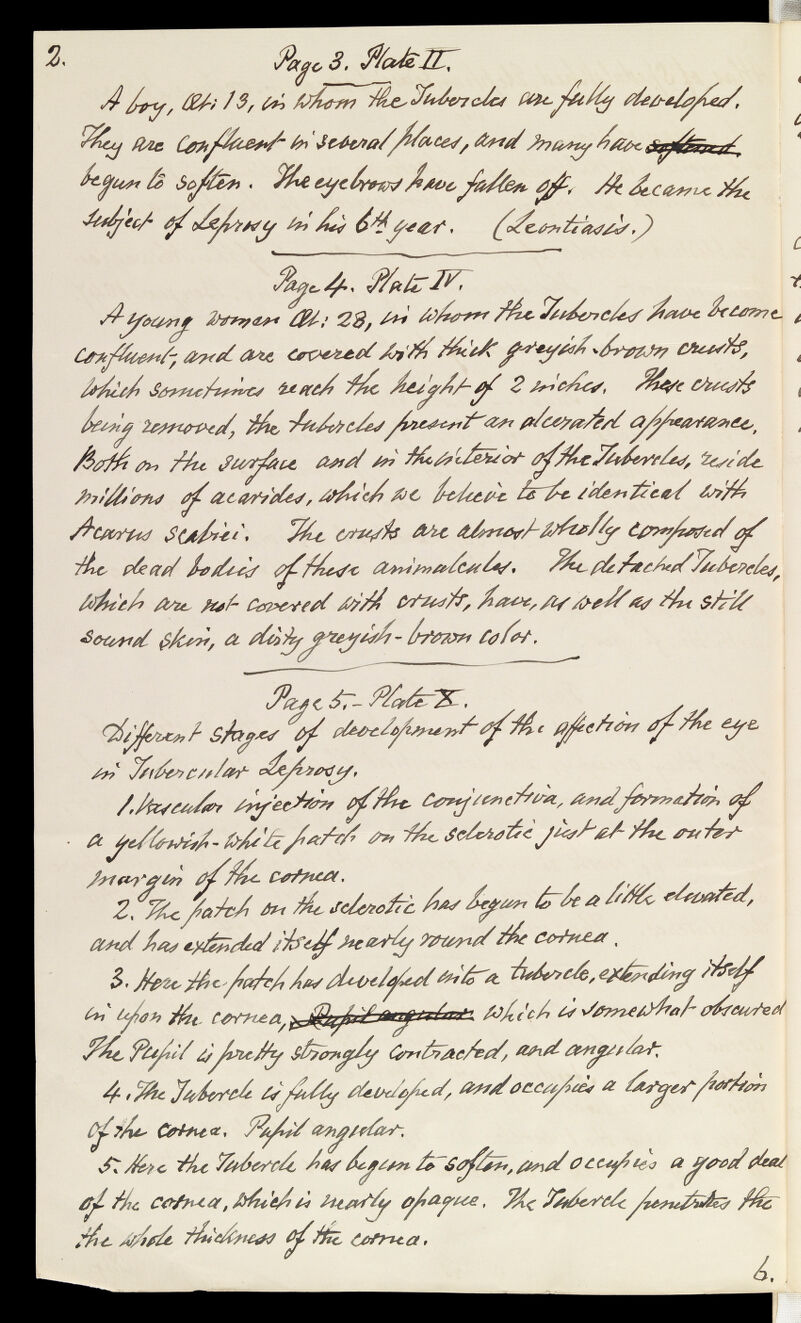 2.
Page 3. Plate II.
A boy, Æt: 13, in whom the Tubercles are fully developed.
They are confluent in several places, and many have softened
begun to soften. The eyebrows have fallen off. He became the
subject of Leprosy in his 6th year. (Leontiasis.)
Page 4. Plate IV.
A young women Æt: 28, in whom the Tubercles have become
confluent, and are covered with thick greyish-brown crusts,
which sometimes reach the height of 2 inches. These crusts
being removed, the tubercles present an ulcerated appearance.
Both on the surface and in the interior of the Tubercles, reside
millions of acarides, which we believe to be identical with
Acarus scabiei. The crusts are almost wholly composed of
the dead bodies of these animalcules. The detached Tubercles,
which are not covered with crusts, have, as well as the still
sound skin, a dirty greyish-brown color.
Page 5.- Plate X.
Different stages of development of the affection of the eye
in Tubercular Leprosy.
1. Vascular injection of the conjunctiva, and formation of
a yellowish-white patch on the sclerotic just at the outer
margin of the cornea.
2. The patch on the sclerotic has begun to be a little elevated,
and has extended itself nearly round the cornea.
3. Here the patch has developed into a tubercle, extending itself
in upon the cornea, Pupil angular which is somewhat obscured
The Pupil is pretty strongly contracted, and angular.
4. The Tubercle is fully developed, and occupies a larger portion
of the cornea. Pupil angular.
5. Here the Tubercle has begun to soften, and occupies a good deal
of the cornea, which is nearly opaque. The Tubercle penetrates the
the whole thickness of the cornea.
6.